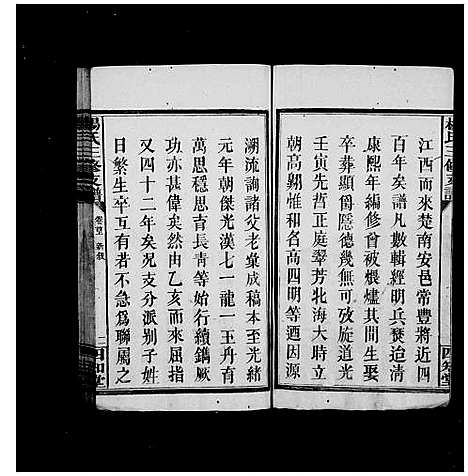 江西而來楚南安邑常豐將近四
百年矣譜凡數輯經明兵燹迨清
康熙年編修曾被煨燼其間生娶
卒葬顯爵隱德幾無可攷旋道光
壬寅先哲正庭翠芳北海大時立
朝高翔惟和名高四明等迺因源
溯流詢諸父老彙成稿本至光緒
元年朝傑光漢七一龍一玉丹育
萬思穩思青長青等始行續鐫厥
功亦甚偉矣然由乙亥而來屈指
又四十二年矣况支分派别子姓
日繁生卒互有若不急為聯屬之
楊氏三修支譜
卷首 新叙
二
四知堂